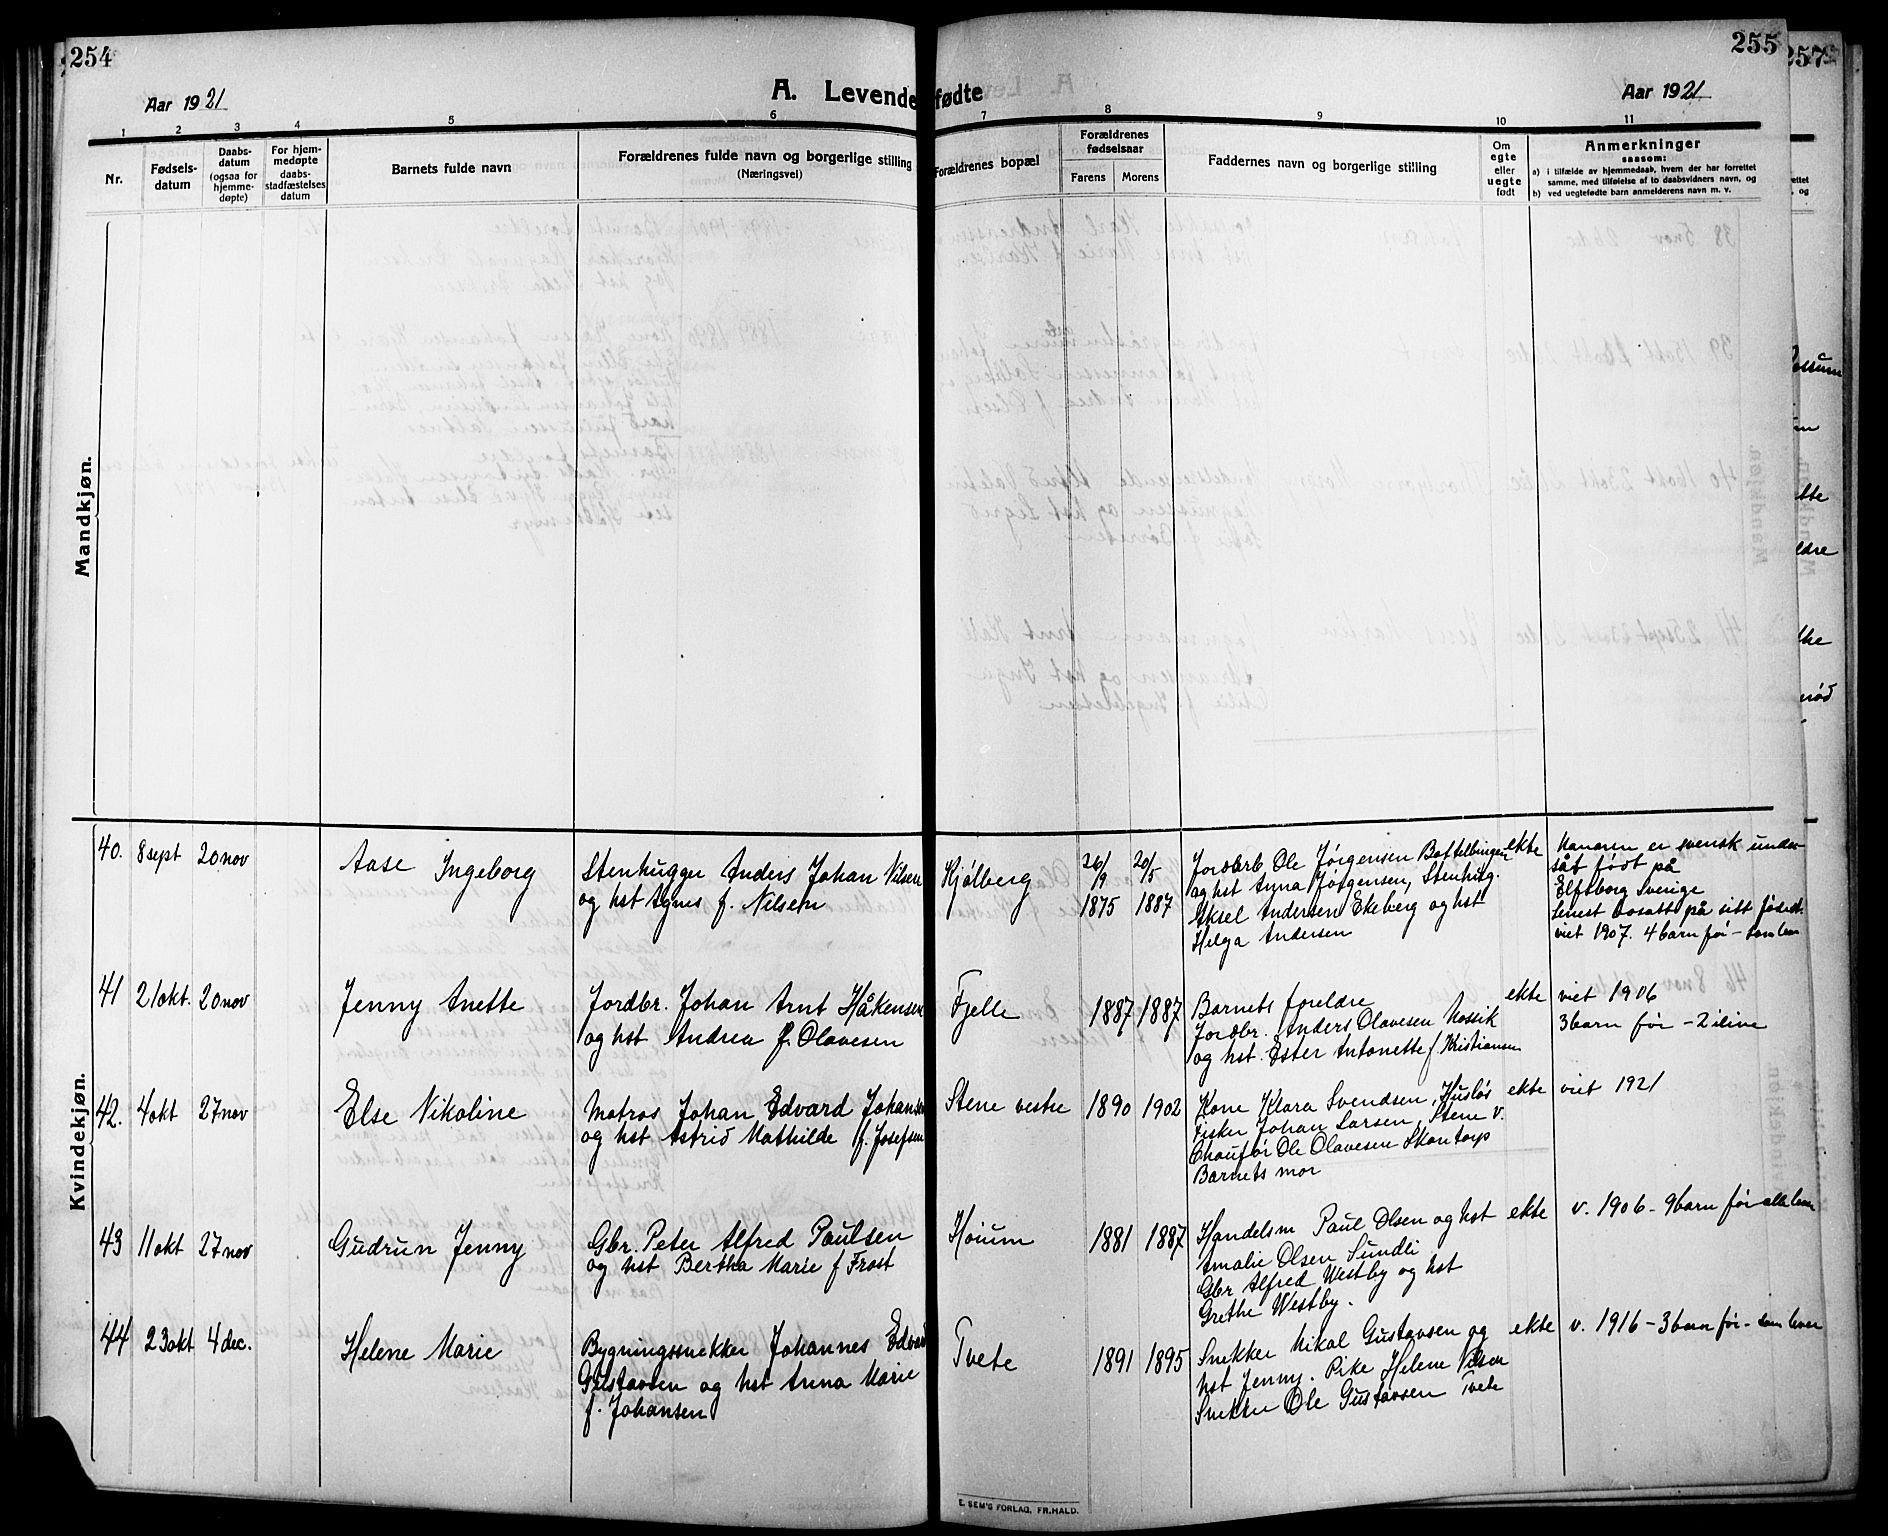 254
255
257
Aar 1921
A. Levendefødte
Aar 1921
1 2 3 4 5 6 7 8 9 10 11
Nr.
Fødsels-
datum
Daabs-
datum
(ogsaa for
hjemme-
døpte)
For hjem-
medøpte
daabs-
stadfæstelses
datum
Barnets fulde navn
Forældrenes fulde navn og borgerlige stilling
(Næringsvei)
Forældrenes bopæl
Forældrenes
fødselsaar
Farens Morens
Faddernes navn og borgerlige stilling
Om
egte
eller
uegte
født
Anmerkninger
saasom:
a) i tilfælde av hjemmedaab, hvem der har forrettet
samme, med tilføielse af to daabsvidners navn, og
b) ved uegtefødte barn anmelderens navn m. v.
Mandkjøn.
Kvindekjøn.
40. 8 sept 20 nov
Aase Ingeborg
Stenhugger Anders Johan Nilsen
og hst Agnes f. Nilsen
Kjølberg
26/9 1875
20/5 1887
Jordarb Ole Jørgensen
og hst Anna Jørgensen, Stenhug.
Aksel Andersen Ekeberg og hst
Helga Andersen
ekte
Manden er svensk under-
såt født på
Elfsborg Sverige
Senest bosatt på sitt fødest.
viet 1907. 4 barn før – som lever
41 21 okt. 20 nov
Jenny Anette
Jordbr. Johan Arnt Håkensen
og hst Andrea f. Olavesen
Fjelle
1887 1887
Barnets foreldre
Jordbr. Anders Olavesen
og hst. Ester Antonette f Kristiansen
ekte
viet 1906
3 barn før – 2 i live
42. 4 okt 27 nov
Else Nikoline
Matros Johan Edvard Johansen
og hst Astrid Mathilde f. Josefsen
Stene vestre
1890 1902
Kone Klara Svendsen, Husløs
Fisker Johan Larsen, Stene v.
Chaufør Ole Olavesen Skantorp
Barnets mor
ekte
viet 1921
43 11 okt 27 nov
Gudrun Jenny
Gbr. Peter Alfred Paulsen
og hst Bertha Marie f Frost
Høium
1881 1887
Handelsm Paul Olsen og hst
Amalie Olsen Sundli
Gbr Alfred Westby og hst
Grethe Westby.
ekte
v. 1906 – 9 barn før alle lever
44 23 okt 4 dec.
Helene Marie
Bygningssnekker Johannes Edvard
Gustavsen og hst Anna Marie
f. Johansen
Tvete
1891 1895
Snekker Mikal Gustavsen og
hst Jenny. Pike Helene Nilsen
Snekker Ole Gustavsen Tvete
ekte
v. 1916 – 3 barn før – som lever
E. SEM'S FORLAG, FR.HALD.